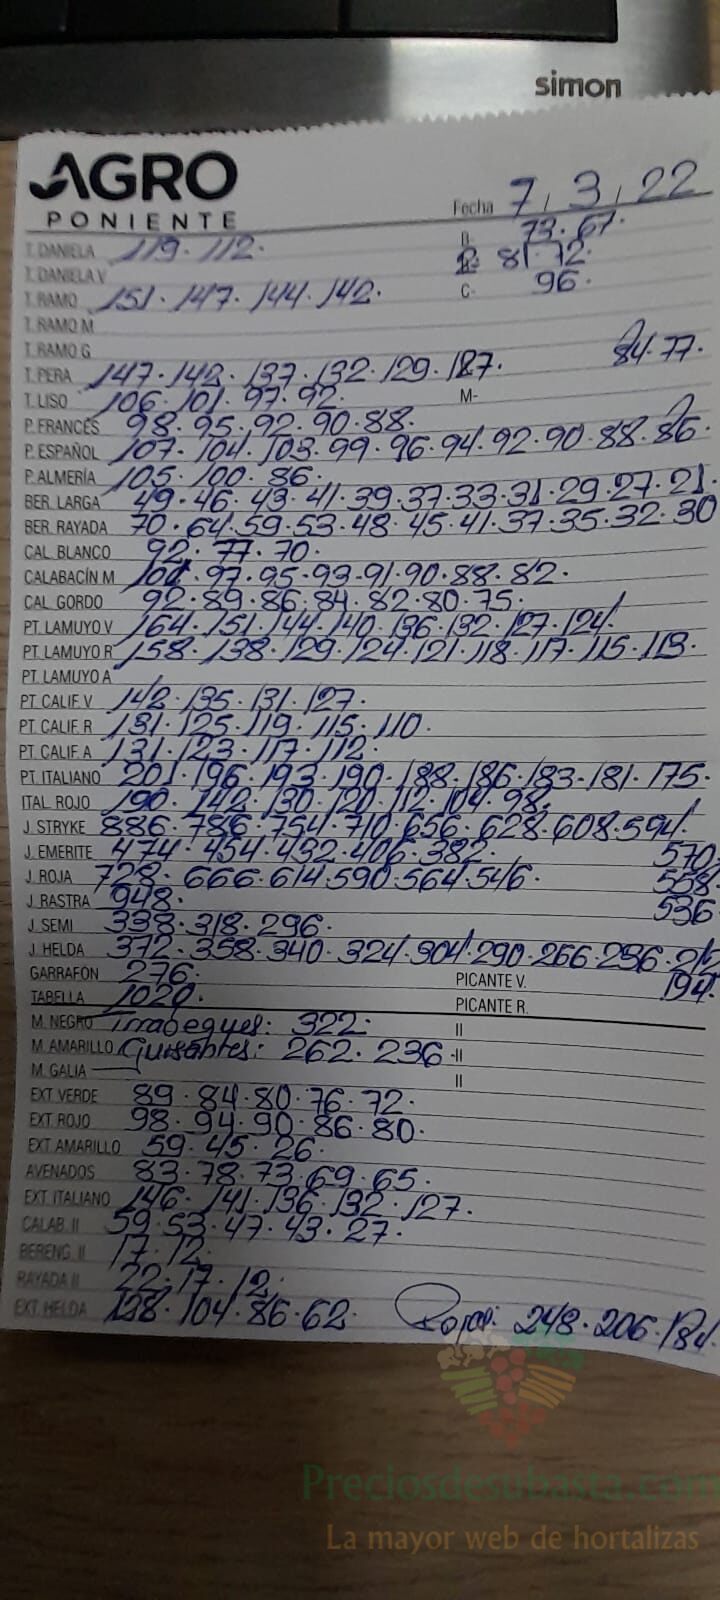 simon
AGRO
PONIENTE
Fecha 7, 3, 22
73. 67.
T. DANIELA 119. 112. B- 81. 72.
T. DANELA V C- 96.
T. RAMO 151. 147. 144. 142.
T. RAMO M
T. RAMO G 84. 77.
T. PERA 147. 142. 137. 132. 129. 127.
T. LISO 106. 101. 97. 92. M-
P. FRANCÉS 98. 95. 92. 90. 88.
P. ESPAÑOL 107. 104. 103. 99. 96. 94. 92. 90. 88. 86.
P. ALMERÍA 105. 100. 86.
BER. LARGA 49. 46. 43. 41. 39. 37. 33. 31. 29. 27. 21.
BER. RAYADA 70. 64. 59. 53. 48. 45. 41. 37. 35. 32. 30
CAL. BLANCO 92. 77. 70.
CALABACÍN M 97. 95. 93. 91. 90. 88. 82.
CAL. GORDO 92. 89. 86. 84. 82. 80. 75.
PT. LAMUYO V 164. 151. 144. 140. 136. 132. 127. 124.
PT. LAMUYO R 158. 138. 129. 124. 121. 118. 117. 115. 113.
PT. LAMUYO A
PT. CALIF. V 142. 135. 131. 127.
PT. CALIF. R 131. 125. 119. 115. 110.
PT. CALIF. A 131. 123. 117. 112.
PT. ITALIANO 201. 196. 193. 190. 188. 186. 183. 181. 175.
ITAL. ROJO 190. 142. 130. 120. 112. 104. 98.
J. STRYKE 886. 786. 754. 710. 656. 628. 608. 594.
J. EMERITE 474. 454. 432. 406. 382. 570.
J. ROJA 728. 666. 614. 590. 564. 546. 558.
J. RASTRA 948. 536
J. SEMI 338. 318. 296.
J. HELDA 372. 358. 340. 324. 304. 290. 266. 236. 212
GARRAFÓN 276. PICANTE V. 194.
TABELLA 1020. PICANTE R.
M. NEGRO Tirabeques: 322. II
M. AMARILLO Guisantes: 262. 236 II
M. GALIA II
EXT. VERDE 89. 84. 80. 76. 72.
EXT. ROJO 98. 94. 90. 86. 80.
EXT. AMARILLO 59. 45. 26.
AVENADOS 83. 78. 73. 69. 65.
EXT. ITALIANO 146. 141. 136. 132. 127.
CALAB. II 59. 53. 47. 43. 27.
BERENG. II 17. 12.
RAYADA II 22. 17. 12.
EXT. HELDA 128. 104. 86. 62. Rojos: 248. 206. 184.
Preciosdesubasta.com
La mayor web de hortalizas